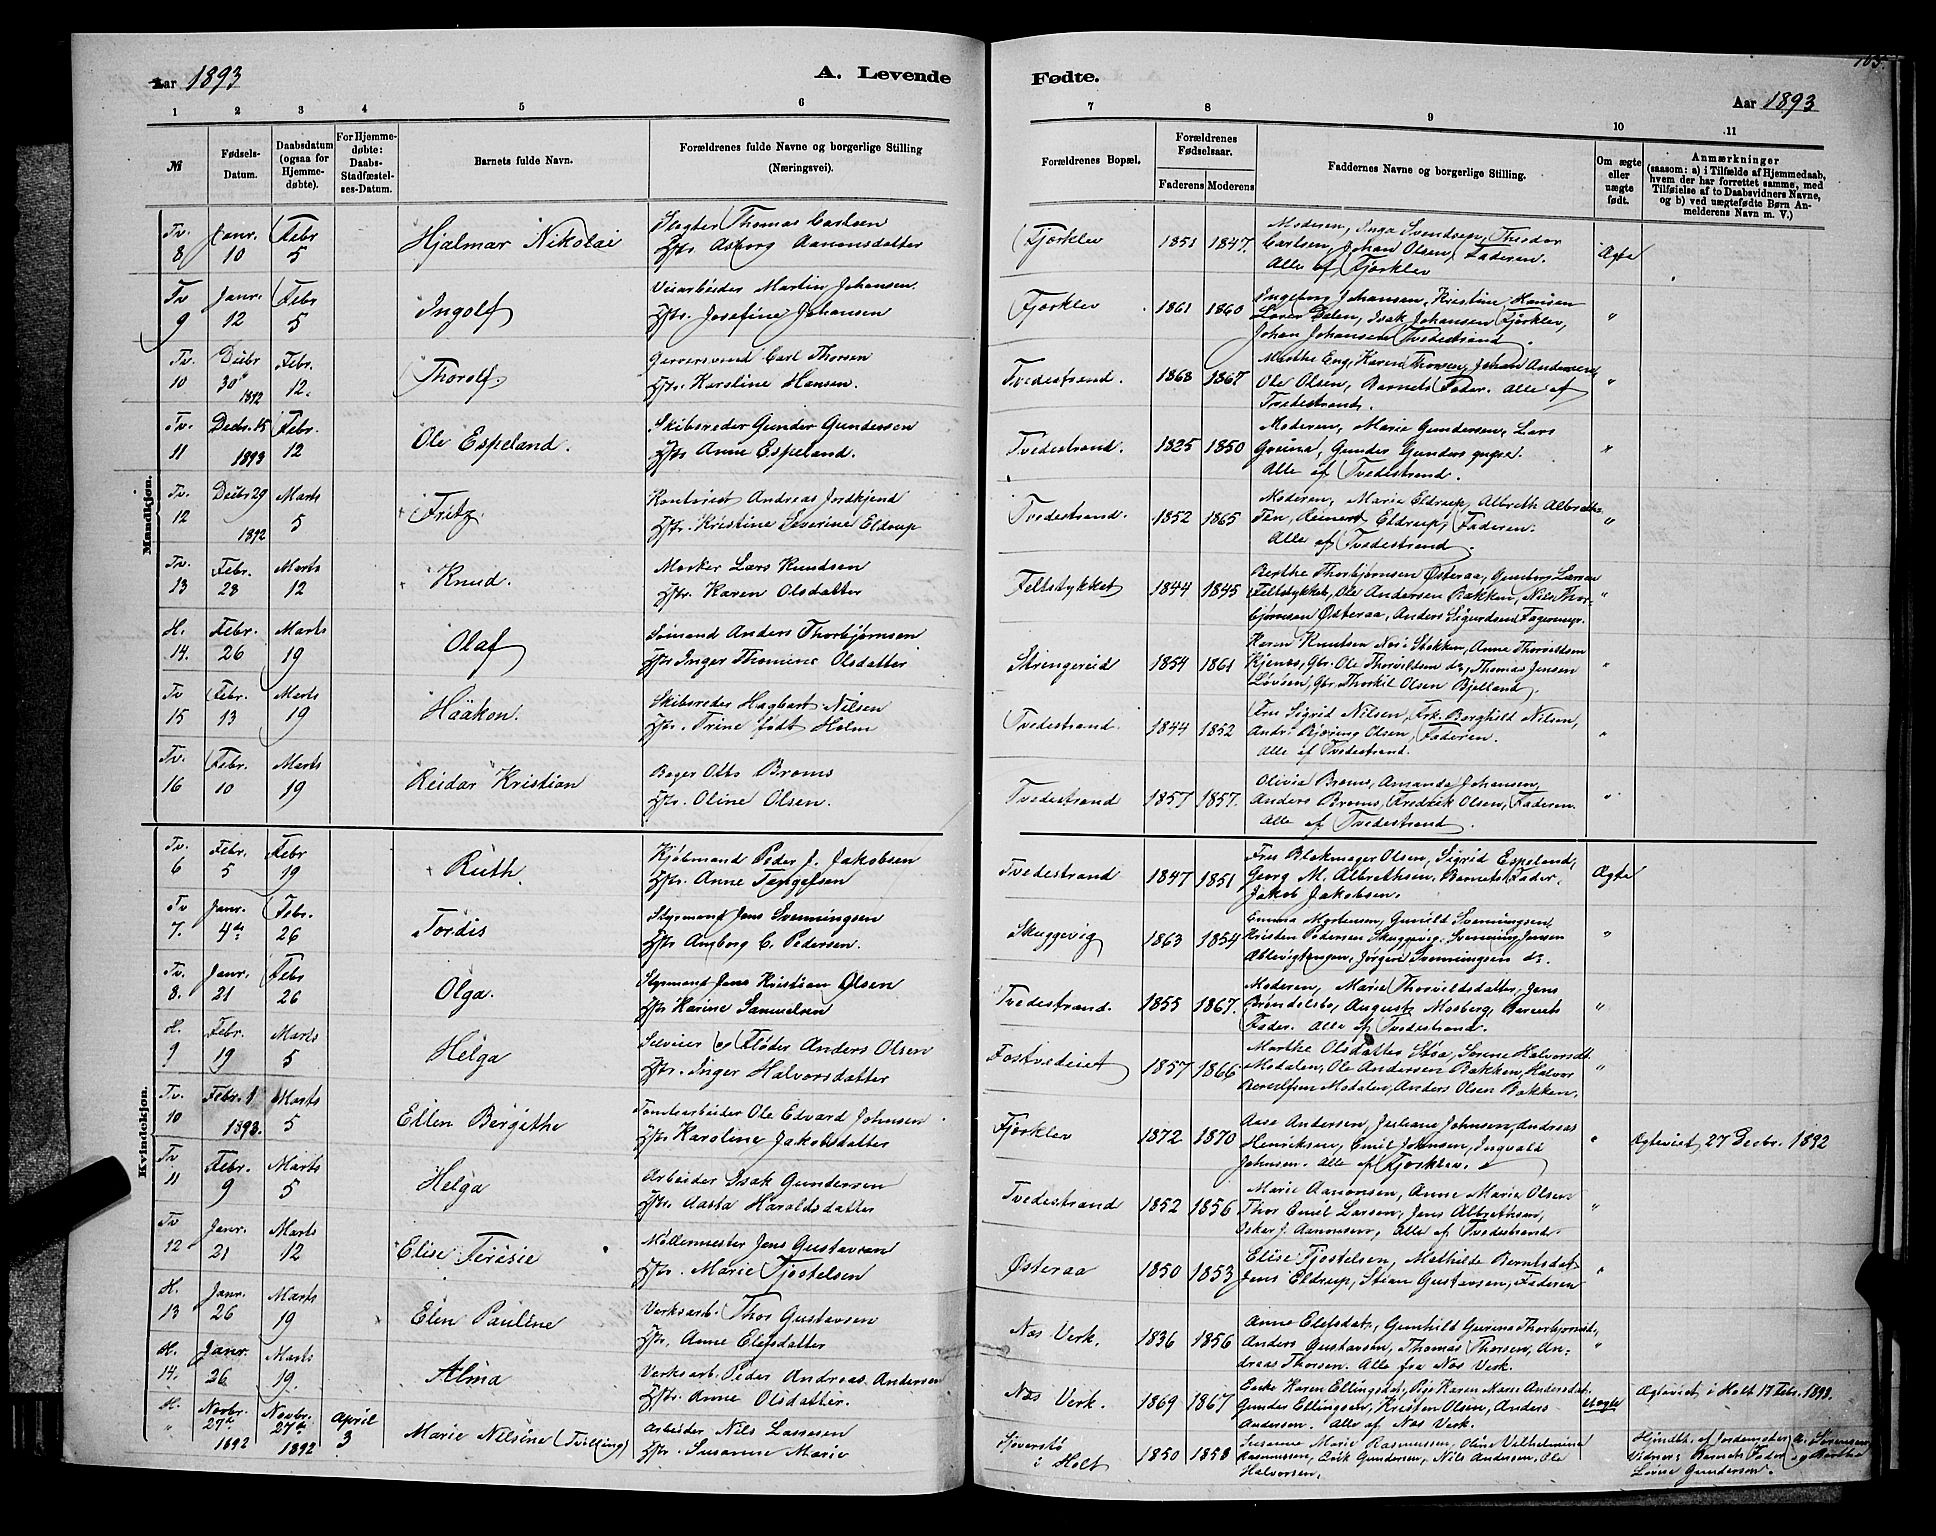 Aar 1893
A. Levende
Fødte.
Aar 1893
105.
1 2 3 4 5 6 7 8 9 10 11
№
Fødsels-
Datum.
Daabsdatum
(ogsaa for
Hjemme-
døbte).
For Hjemme-
døbte:
Daabs-
Stadfæstel-
ses-Datum.
Barnets fulde Navn.
Forældrenes fulde Navne og borgerlige Stilling
(Næringsvei).
Forældrenes Bopæl.
Forældrenes
Fødselsaar.
Faderens Moderens
Faddernes Navne og borgerlige Stilling.
Om ægte
eller
uægte
født.
Anmærkninger
(saasom: a) i Tilfælde af Hjemmedaab,
hvem der har forrettet samme, med
Tilføielse af to Daabsvidners Navne,
og b) ved uægtefødte Børn An-
melderens Navn m. V.)
Mandkjøn.
Tv. 8 Janr. 10 Febr 5 Hjalmar Nikolai
Slagter Thomas Carlsen
Hstr. Asborg Aanonsdatter
Fjærklev 1851 1847.
Moderen, Inga Svendsen, Theodor
Carlsen, Johan Olsen, Faderen.
Alle af Fjærklev
Ægte
Tv 9 Janr. 12 Febr 5 Ingolf
Veiarbeider Martin Johansen.
Hstr. Josefine Johansen
Fjærklev 1861 1860
Ingeborg Johansen, Kristine Hansen
Dalen, Isak Johansen Fjærklev,
Johan Johansen Tvedestrand.
"
Tv. 10 Decbr 30 1892 Febr. 12. Thorolf.
Garversvend Carl Thorsen
Hstr. Karoline Hansen.
Tvedestrand. 1868 1867
Marthe Eng, Karen Thorsen, Johan Andersen,
Ole Olsen, Barnets Fader. Alle af
Tvedestrand.
"
Tv. 11 Decbr. 15 1893 Febr. 12 Ole Espeland.
Skibsreder Gunder Gundersen
Hstr Anne Espeland.
Tvedestrand. 1825 1850
Moderen, Marie Gundersen, Lars
Gunder
Alle af Tvedestrand.
"
Tv. 12 Decbr 29 1892 Marts 5 Fritz.
Kontorist Andreas Jordkjend
Hstr. Kristine Severine Eldrup
Tvedestrand. 1852 1865
Moderen, Marie Eldrup, Albreth Albreth-
sen, Reinert Eldrup, Faderen.
Alle af Tvedestrand.
"
Tv. 13 Febr. 28 Marts 12 Knud.
Lars Knudsen
Hstr. Karen Olsdatter
Feltstykket 1844 1845
Berthe Thorbjørnsen Østeraa, Gunborg Larsen
Feltstykket, Ole Andersen Bakken, Nils Thor-
bjørnsen Østeraa, Anders Sigurdsen
"
H. 14. Febr. 26 Marts 19 Olaf
Sømand Anders Thorbjørnsen
Hstr Inger Thomine Olsdatter
Strengereid 1854 1861
Karen Knutsen Næs i Stokken, Anne Thorvildsen
Ole Thorvildsen ds, Thomas Jensen
Løvsen, Gbr. Thorkil Olsen Bjelland.
"
Tv 15 Febr. 13 Marts 19 Haakon.
Skibsreder Hagbart Nilsen
Hstr. Trine født Holm
Tvedestrand. 1844 1852
Fru Sigrid Nilsen, Frk. Borghild Nilsen,
Andr. Olsen, Faderen.
Alle af Tvedestrand.
"
Tv. 16 Febr. 10 Marts 19 Reidar Kristian
Bager Otto Broms
Hstr. Oline Olsen.
Tvedestrand 1857 1857.
Olivia Broms, Amanda Johansen,
Anders Broms, Fredrik Olsen, Faderen.
Alle af Tvedestrand.
"
Kvindekjøn.
Tv. 6 Febr. 5 Febr 19 Ruth.
Kjøbmand Peder J. Jakobsen
Hstr. Anne Tangefsen
Tvedestrand 1847 1851
Fru Blokmager Olsen, Sigrid Espeland,
Georg M. Albrethsen, Barnets Fader,
Jakob Jakobsen.
Ægte
Tv 7. Janr. 4de Febr. 26 Tordis
Styrmand Jens Svenningsen
Hstr Amborg C. Pedersen.
Skuggevig 1863 1854
Emma Mortensen, Gunild Svenningsen,
Kristen Pedersen Skuggevig, Svenning Jensen
Jørgen Svenningsen ds.
"
Tv. 8. Janr. 21 Febr 26 Olga.
Styrmand Jens Kristian Olsen
Hstr Karine Samuelsen
Tvedestrand. 1855 1867.
Moderen, Marie Thorvildsdatter, Jens
Brøndelsbo, August Mosberg, Barnets
Fader. Alle af Tvedestrand.
"
H. 9 Febr. 19 Marts 5 Helga
Selveier og Fløder Anders Olsen
Hstr. Inger Halvorsdatter
Fostvedeiet 1857 1866
Marthe Olsdatter Støa, Serine Halvorsdt.
Modalen, Ole Andersen Bakken, Halvor
Modalen, Anders Olsen Bakken.
"
Tv. 10 Febr. 1 1893. Marts 5 Ellen Bergithe
Tomtearbeider Ole Edvard Johnsen
Hstr Karoline Jakobsdatter
Fjærklev 1872 1870
Aase Andersen, Juliane Johnsen, Andreas
Henriksen, Emil Johnsen, Ingvald
Johnsen. Alle af Fjærklev.
"
Ægteviet 27 Decbr. 1892
Tv 11 Febr. 9 Marts 5 Helga
Arbeider Isak Gundersen
Hstr. Aasta Haraldsdatter
Tvedestrand 1852 1856
Marie Aanonsen, Anne Marie Olsen
Thor Emil Larsen, Jens Albrethsen,
Oskar J. Aanonsen, Alle af Tvedestrand.
"
Tv 12 Janr. 21 Marts 12 Elise Terasie
Møllermester Jens Gustavsen
Hstr. Marie Fjostelsen
Østeraa 1850 1853
Elise Fjostelsen, Mathilde Berntsdat.
Jens Eldrup, Stian Gustavsen, Faderen
"
H. 13 Janr. 26 Marts 19 Elen Pauline
Verksarb. Thor Gustavsen
Hstr. Anne Elefsdatter
Næs Verk. 1836 1856
Anne Elefsdat, Gunhild Gurine Thorbjørnsdt,
Anders Gustavsen, Thomas Thorsen, An-
dreas Thorsen. Alle fra Næs Verk.
"
H. 14. Janr. 26 Marts 19. Alma
Verksarb. Peder Andreas Andersen
Hstr. Anne Olsdatter.
Næs Verk. 1869 1867
Enke Karen Ellingsdat, Pige Karen Marie Andersdat.
Gunder Ellingsen, Kristen Olsen, Anders
Andersen. Alle af Næs Verk.
Uægte
Ægteviet i Holt 17 Febr. 1893.
H. " Novbr. 27de 1892 Novbr. 27de 1892 April 3 Marie Nilsine (Tvilling)
Arbeider Nils Lassesen
Hstr. Susanne Marie
i Holt 1850 1853
Susanne Marie Rasmussen, Oline Vilhelmine
Rasmussen, Erik Gundersen, Nils Andersen, Ole
Halvorsen.
Hjmdt. af Jordemoder A. Sørensen
Vidner: Barnets Fader og Berthe
Lovise Gundersen.